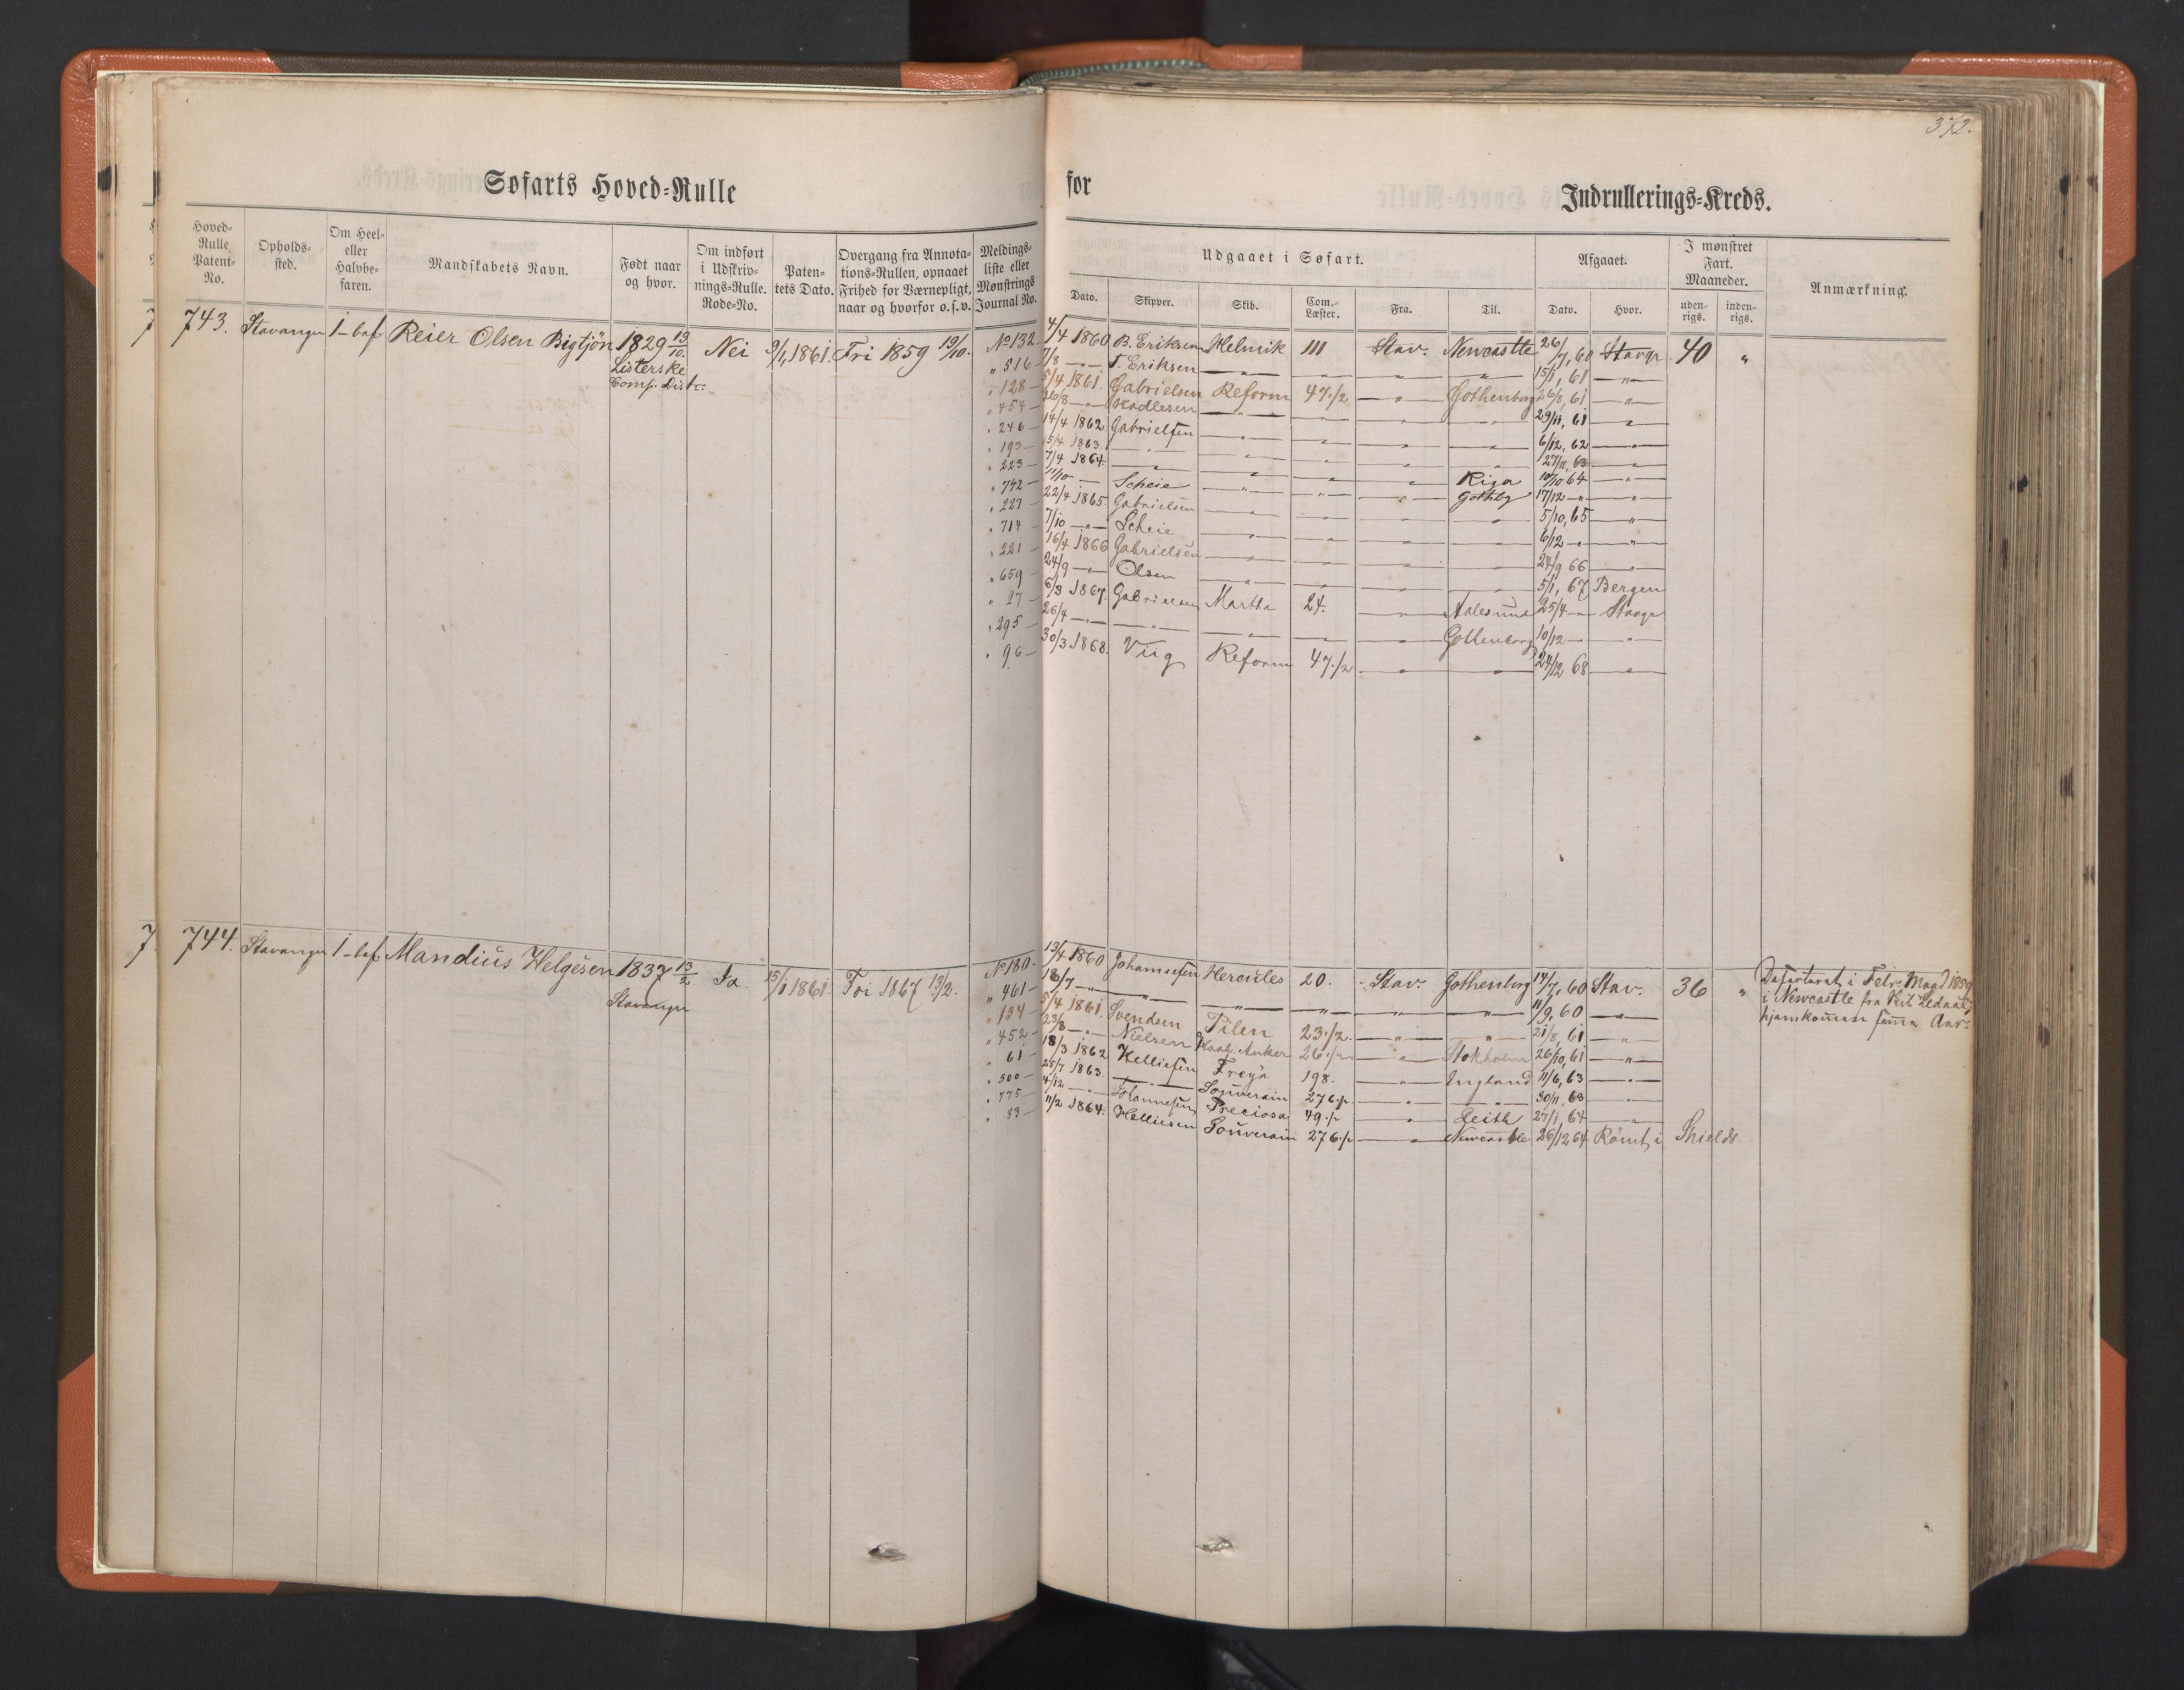 372.
Søfarts Hoved=Rulle
for
Indrullerings=Kreds.
Hoved=Rulle Patent=No.
Opholds=sted.
Om Heel= eller Halvbe=faren.
Mandskabets Navn.
Født naar og hvor.
Om indført i Udskriv=nings=Rulle. Rode=No.
Paten=tets Dato.
Overgang fra Annota=tions=Rullen, opnaaet Frihed for Værnepligt, naar og hvorfor o.s.v.
Meldings=liste eller Mønstrings Journal No.
Udgaaet i Søfart.
Dato. Skipper. Skib. Com.=Læster. Fra. Til.
Afgaaet.
Dato. Hvor.
I mønstret Fart. Maaneder.
uden=rigs. inden=rigs.
Anmærkning.
743. Stavanger 1-bef Reier Olsen Bigtjön 1829 19/10. Nei 9/1, 1861. Fri 1859 19/10. No 132 4/4 1860 B. Eriksen Helmik 111 Stav. Newcastle 26/7, 60 Stavgr 40 "
Listerske
Comp. Distr:
" 516 — 7/8 — " — T. Eriksen — " — " — " — " — 15/1, 61 — " —
" 128 — 5/4 1861. Gabrielsen Reform 47 1/2 — " — Gothenborg 26/8, 61 — " —
" 454 — 26/8 — " — Kadlesen — " — " — " — " — 29/11, 61 — " —
" 246 — 14/4 1862 Gabrielsen — " — " — " — " — 6/12, 62 — " —
" 193 — 15/4 1863. — " — " — " — " — " — 27/11, 63 — " —
" 223 — 7/4 1864. — " — " — " — " — Riga 10/10 64 — " —
" 742 — 11/10 — Scheie — " — " — " — Gothbg 17/12 — " — " —
" 227 — 22/4 1865 Gabrielsen — " — " — " — " — 5/10, 65 — " —
" 714 — 7/10 — " — Scheie — " — " — " — " — 6/12 — " — " —
" 221 — 16/4 1866 Gabrielsen — " — " — " — " — 24/9 66 — " —
" 659 — 24/9 — " — Olsen — " — " — " — " — 5/1, 67 Bergen
" 27 — 6/3 1867. Gabrielsen Martha 24. — " — Aalesund 25/4 — Stavgr
" 295 — 26/4 — " — " — " — " — " — Gothenborg 10/12 — " —
" 96 — 30/3 1868. Viig Reform 47 1/2 — " — " — 24/12 68 — " —
744. Stavanger 1-bef Mandius Helgesen 1837 13/2 Ja 15/1 1861. Fri 1867 13/2. No 180. 13/4 1860 Johannesen Hercules 20. Stav. Gothenborg 14/7, 60 Stav. 36 "
Stavanger
Desarterat i Febr. Maad 1859
i Newcastle fra
hjemkommen samme Aar.
" 461 — 18/7 — " — " — " — " — " — " — 11/9, 60 — " —
" 134 — 5/4 1861. Svendsen Pilen 23 1/2. — " — " — 21/8, 61 — " —
" 452 — 23/8 — " — Nielsen Haab. Anker 26 1/2 — " — Stokholm 26/10, 61 — " —
" 61 — 18/3 1862 Helliesen Freya 198. — " — England 11/6, 63 — " —
" 500 — 25/7 1863. — " — Souverain 276 1/2 — " — " — 30/11, 63 — " —
" 775 — 4/12 — " — Johannesen Preciosa 49 1/2 — " — Leith 27/1, 64 — " —
" 83 — 11/2 1864. Helliesen Souverain 276 1/2 — " — Newcastle 26/12 64 Römt, i Shields.